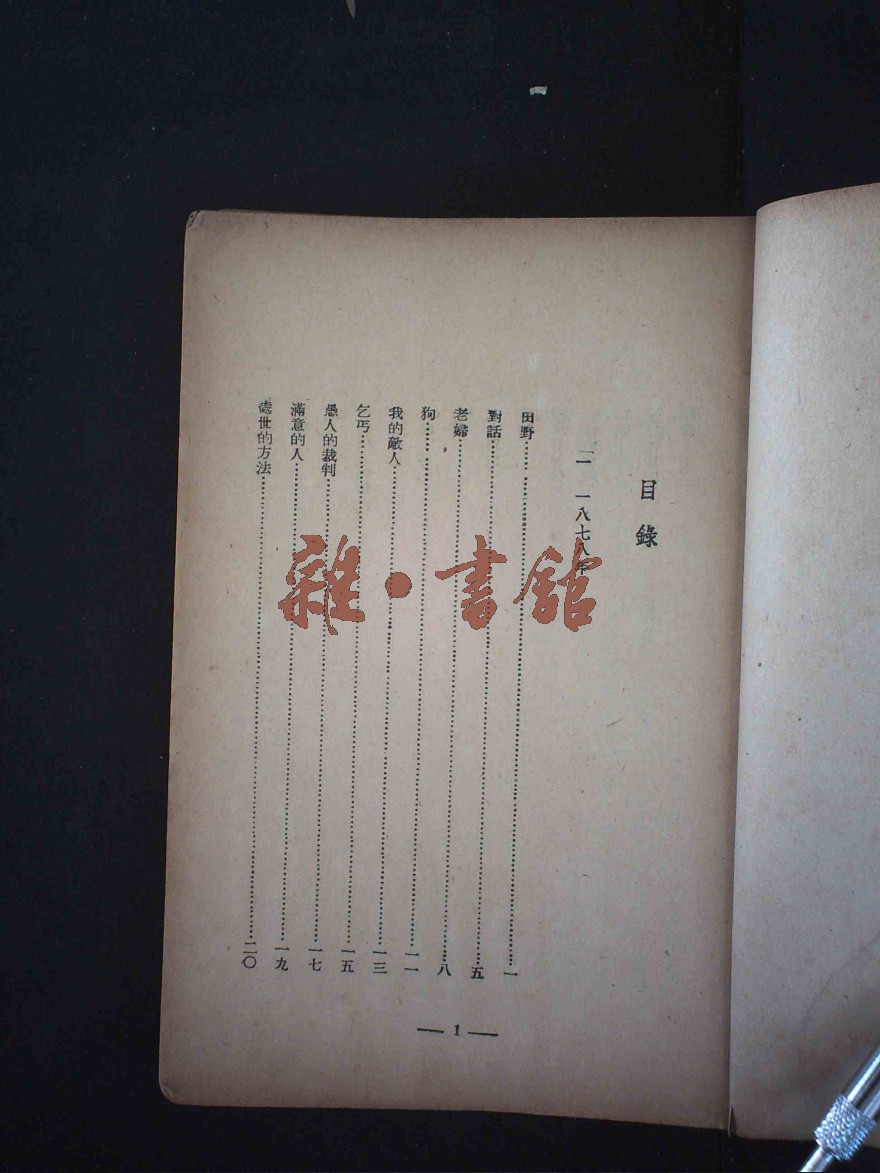 目錄
一 一八七八年
田野……一
對話……五
老婦……八
狗……一一
我的敵人……一三
乞丐……一五
愚人的裁判……一七
滿意的人……一九
處世的方法……二〇
— 1 —
雜·書舘